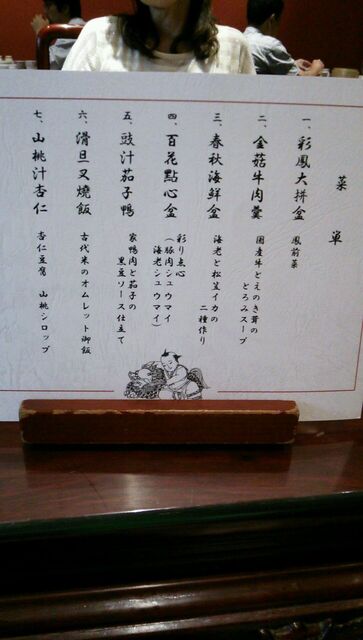 菜單
一、彩鳳大拼盆
鳳前菜
二、金菇牛肉羹
国産牛とえのき茸の
とろみスープ
三、春秋海鮮盒
海老と松笠イカの
二種作り
四、百花點心盒
彩り点心
(豚肉シュウマイ
海老シュウマイ)
五、豉汁茄子鴨
家鴨肉と茄子の
黒豆ソース仕立て
六、滑旦叉燒飯
古代米のオムレット御飯
七、山桃汁杏仁
杏仁豆腐 山桃シロップ